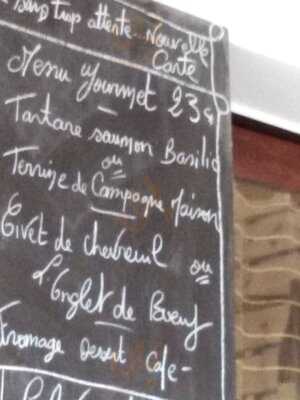 sans trop attente. Nouvelle
Carte
Menu Gourmet 23€
Tartare saumon Basilic
ou
Terrine de Campagne Maison
Civet de chevreuil ou
L'onglet de Boeuf
Fromage Desert Cafe-